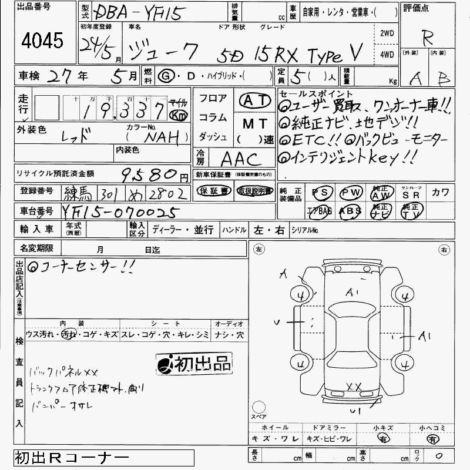 出品番号 型式 DBA-YF15 排気量 cc 車歴 自家用・レンタ・営業車・( ) 評価点
4045 初年度登録 24/5月 車名 ドア 形状 グレード
ジューク 5D 15RX Type V 2WD 4WD R
車検 27年 5月 燃料 G・D・ハイブリッド・( ) 定員 5( )人 積載量 Kg 外装 A 内装 B
走行 19,337 マイル Km
フロア コラム ダッシュ AT MT ( )速
セールスポイント
◎ユーザー買取、ワンオーナー車!!
◎純正ナビ、地デジ!!
◎ETC!! ◎バックビューモニター
◎インテリジェントkey!!
外装色 レッド カラーNo. (NAH)
内装色 冷房 AAC
リサイクル預託済金額 9,580円 新車保証書
登録番号 練馬 301 め 2802 保証書 取扱説明書
純正装備品 PS PW 純正AW サンルーフSR カワ
エアBAG ABS 純正ナビ 純正TV
車台番号 YF15-070025
輸入車 年式 (西暦) 年 輸入区分 ディーラー・並行 ハンドル 左・右 シリアルNo
名変期限 月 日迄
出品店記入
◎コーナーセンサー!!
左 右
検査員記入
内装 シート オーディオ
ウス汚れ・汚れ・コゲ・キズ スレ・コゲ・穴・キレ・シミ ナシ・穴
バックパネルXX
トランクフロア修正機アト、曲り
バンパーオサレ
初出品
A A1
4 4
U U A1
4 4
XX
U A1
スペア
ホイール ドアミラー 小キズ 小ヘコミ
キズ・ワレ キズ・ヒビ・ワレ 有 有
長さ cm 幅 cm 高さ cm 0
初出Rコーナー